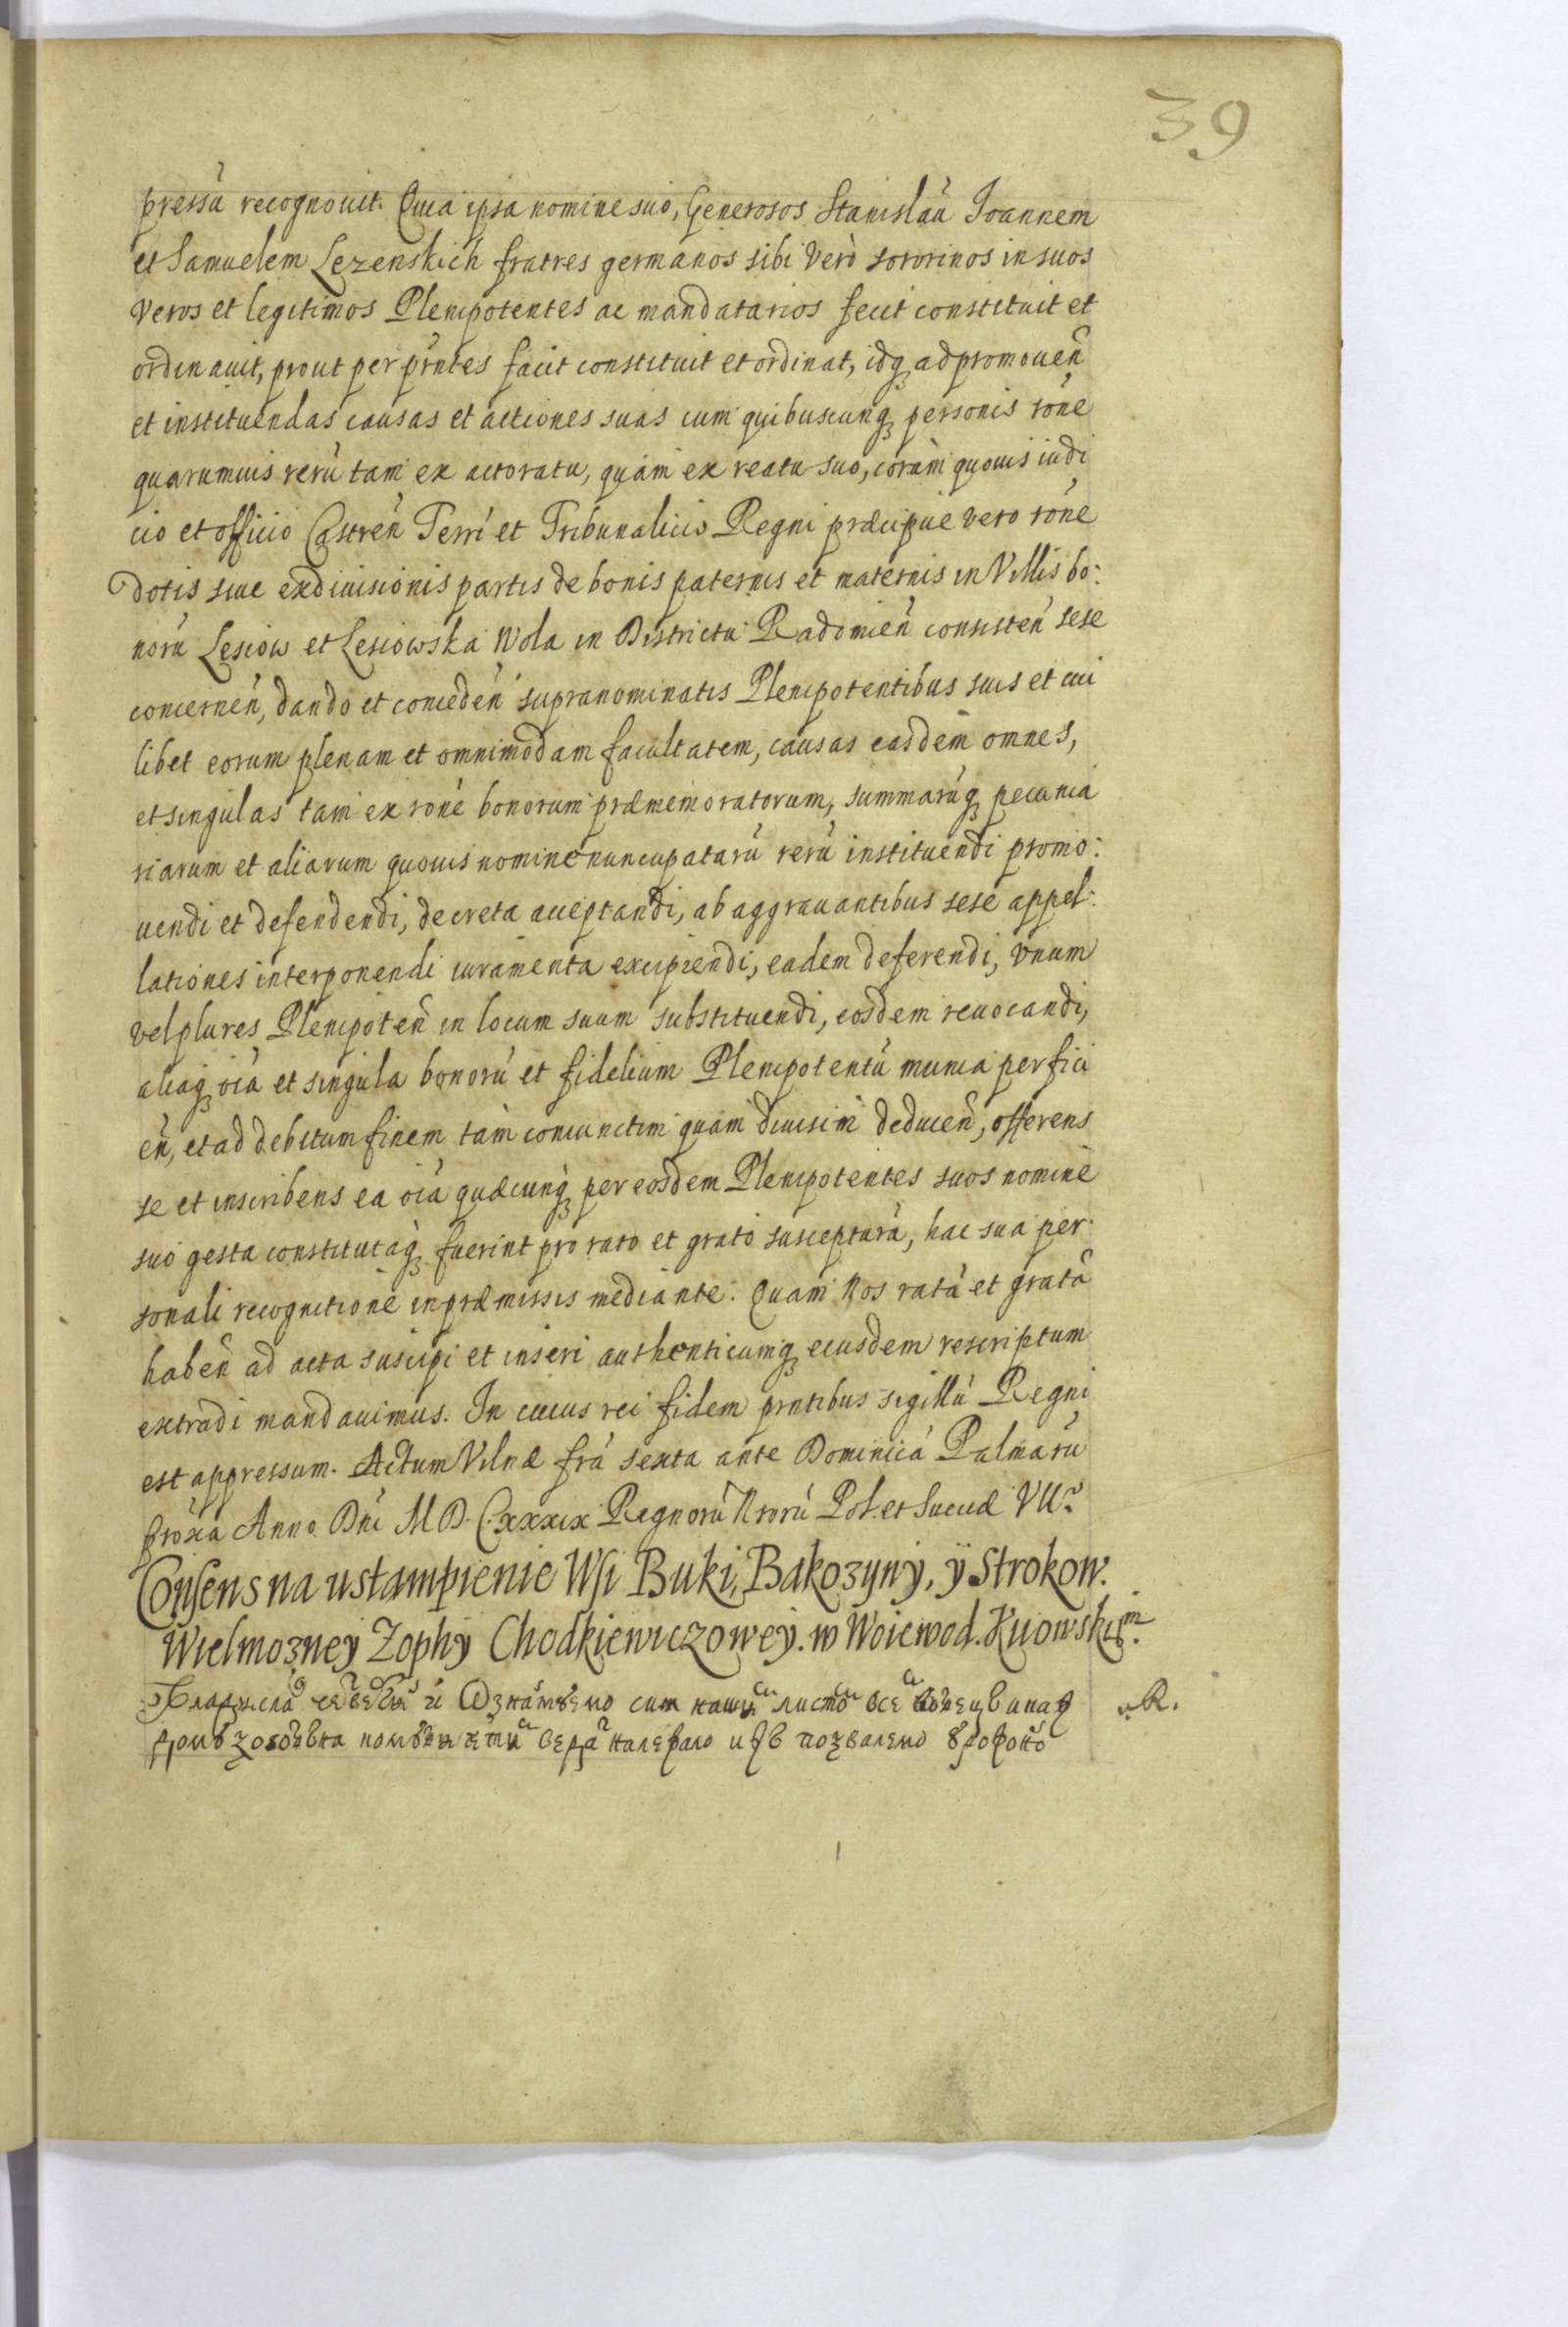 39
pressũ recognouit. Quia ipsa nomine suo, Generosos Stanislaũ Joannem
et Samuelem Lezenskich fratres germanos sibi verò sororinos in suos
veros et legitimos Plenipotentes ac mandatarios fecit constituit et
ordinauit, prout per pñtes facit constituit et ordinat, idq ad promoueñ
et instituendas causas et actiones suas cum quibuscunq personis rõne
quarumuis rerũ tam ex actoratu, quàm ex reatu suo, coràm quouis iudi
cio et officio Castreñ Terrĩ et Tribunalicio Regni præcipuè vero rõne
dotis siue exdiuisionis partis de bonis paternis et maternis in Villis bo:
norũ Lesiow et Lesiowska Wola in Districtu Radomieñ consisteñ sese
concerneñ, dando et concedeñ supranominatis Plenipotentibus suis et cui
libet eorum plenam et omnimodam facultatem, causas easdem omnes,
et singulas tam ex rõne bonorum præmemoratorum, summarũq pecunia
riarum et aliarum quouis nomine nuncupatarũ rerũ instituendi promo:
uendi et defendendi, decreta acceptandi, ab aggrauantibus sese appel:
lationes interponendi iuramenta excipiendi, eadem deferendi, vnum
vel plures Plenipoteñ in locum suum substituendi, eosdem reuocandi,
aliaq oĩa et singula bonorũ et fidelium Plenipotentũ munia perfici
eñ, et ad debitum finem tàm coniunctim quàm diuisim deduceñ, offerens
se et inscribens ea oĩa quæcunq per eosdem Plenipotentes suos nomine
suo gesta constitutaq fuerint pro rato et grato susceptura, hac sua per
sonali recognitione in præmissis mediante. Quam Nos ratã et gratã
habeñ ad acta suscipi et inseri authenticumq eiusdem rescriptum
extradi mandauimus. In cuius rei fidem pñtibus sigillũ Regni
est appressum. Actum Vilnæ frã sexta ante Dominicã Palmarũ
proxã Anno Dñi M.D.C.xxxix Regnorũ Nrorũ Pol. et Sueciæ VII.º
Consens na ustąmpienie Wsi Buki, Bakozyny, ÿ Strokow.
Wielmożney Zophÿ Chodkiewiczowey. w Woiewod. Kiiowskim.
Владислав четвертый Ознаймуемо сим нашим листом все вобец и
кому ведат належало позволяемо урожоной
R.